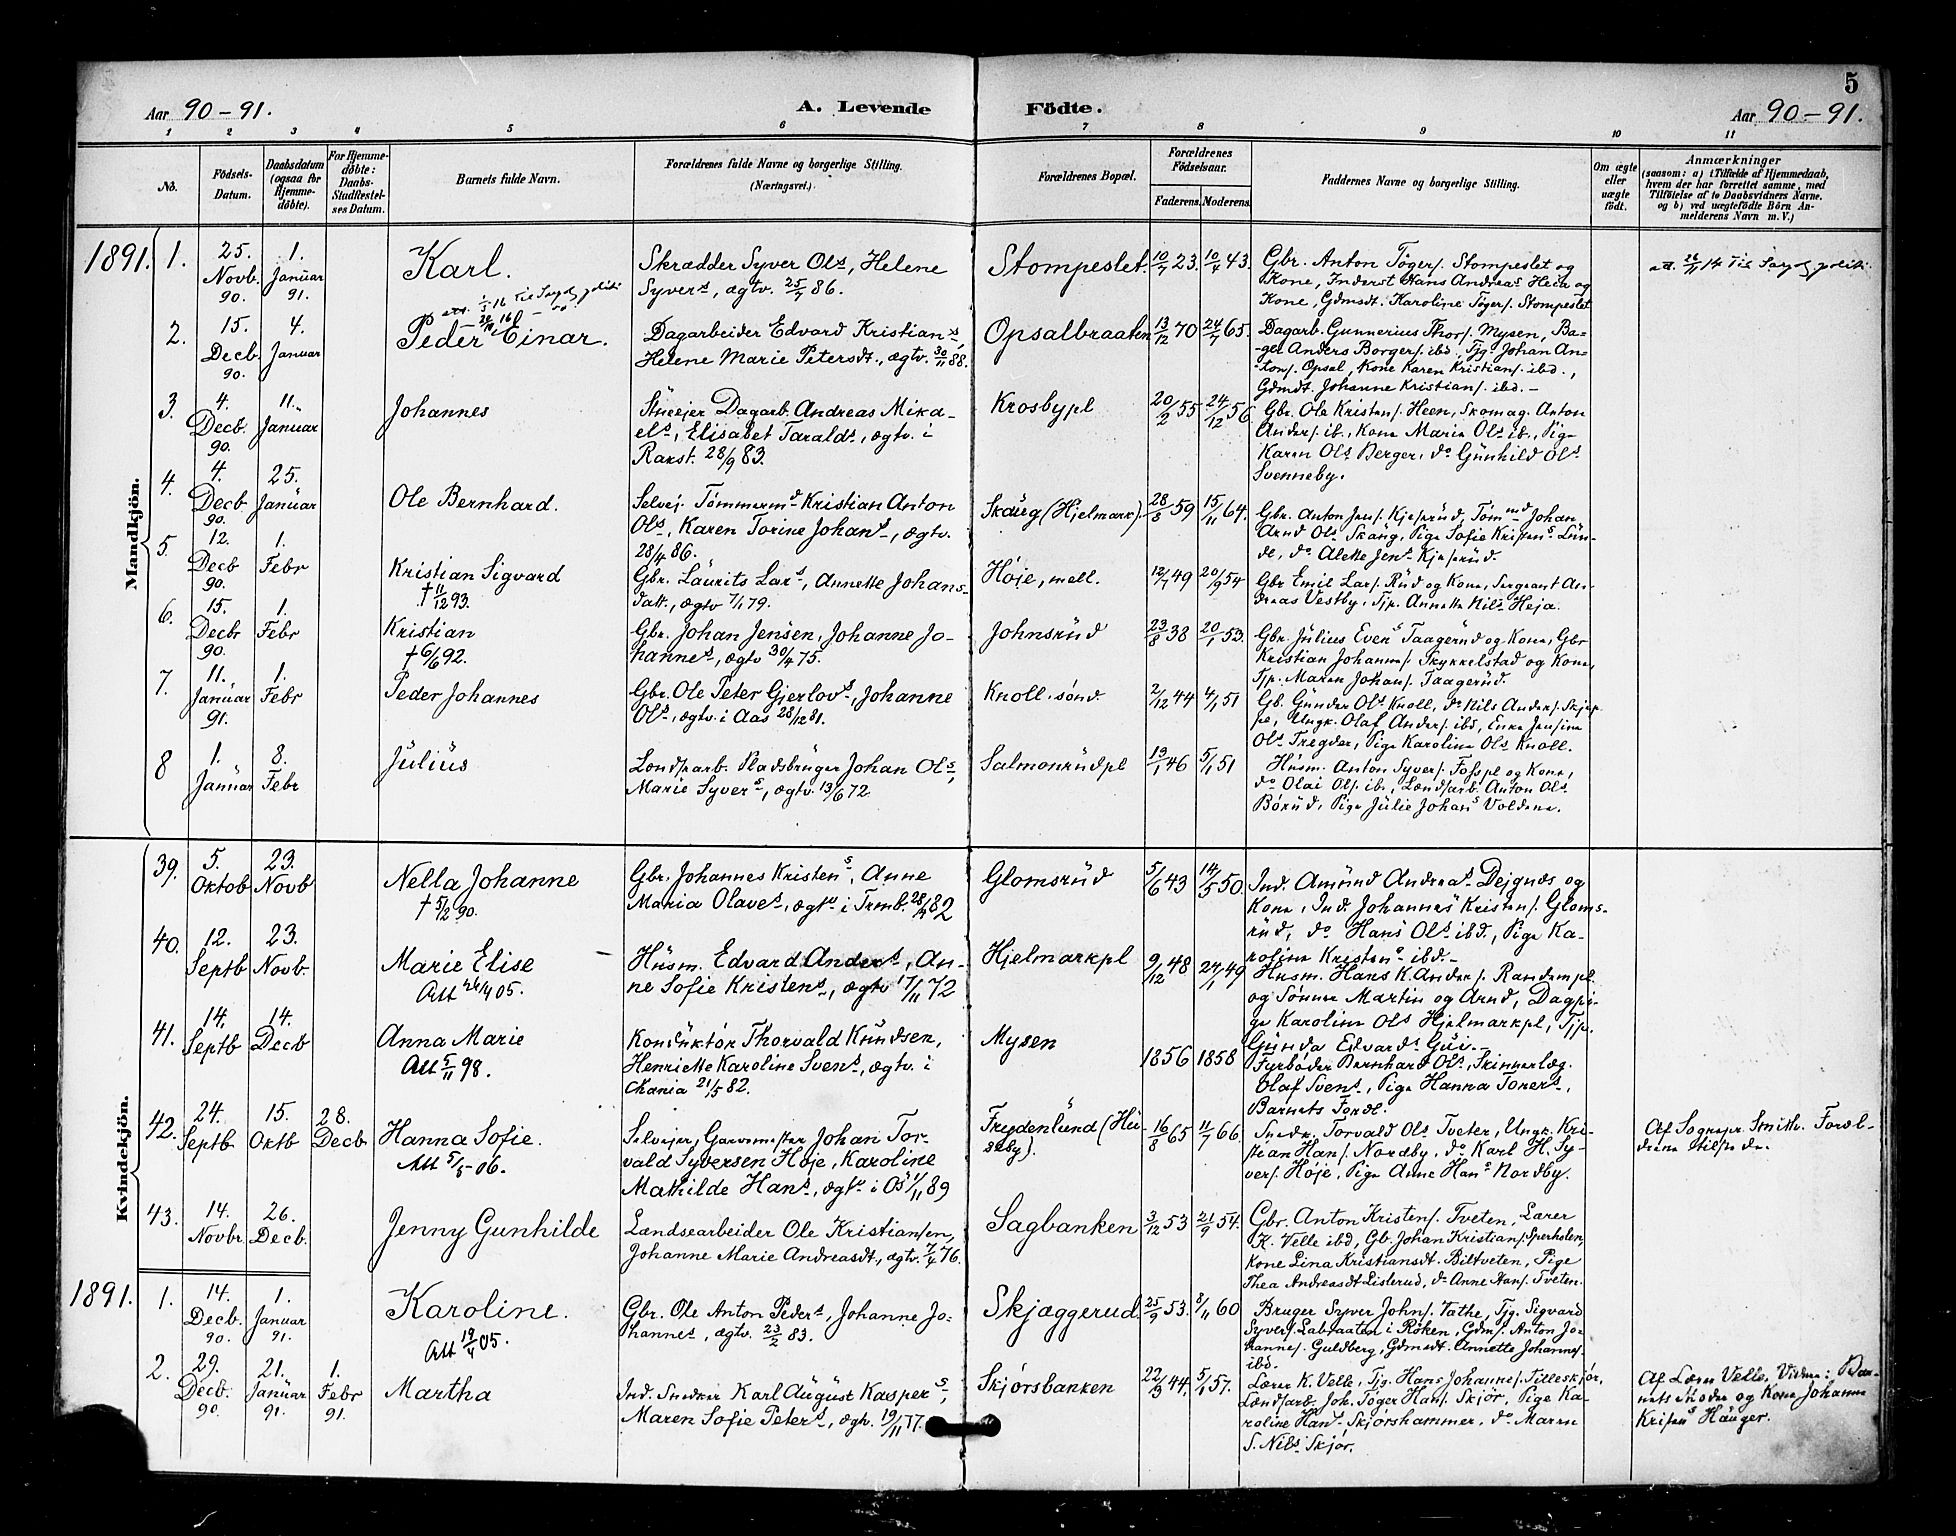 5
Aar 90-91.
A. Levende Födte.
Aar 90-91.
1 2 3 4 5 6 7 8 9 10 11
No.
Födsels-Datum.
Daabsdatum (ogsaa for Hjemme-döbte).
For Hjemme-döbte: Daabs-Stadfæstel-ses Datum.
Barnets fulde Navn.
Forældrenes fulde Navne og borgerlige Stilling. (Næringsvei.)
Forældrenes Bopæl.
Forældrenes Födselsaar.
Faderens. Moderens.
Faddernes Navne og borgerlige Stilling.
Om ægte eller uægte födt.
Anmærkninger
(saasom: a) i Tilfælde af Hjemmedaab,
hvem der har forrettet samme, med
Tilföielse af to Daabsvidners Navne.
og b) ved uægtefödte Börn An-
melderens Navn m. V.)
Mandkjön.
1891. 1.
25. Novb. 90.
1. Januar 91.
Karl.
Skrædder Syver Ols, Helene
Syvers, ægtv. 25/7 86.
Stompeslet.
10/7 23. 10/4 43.
Gbr. Anton Tøgers. Stompeslet og
Kone, Inderst Hans Andreas Heia og
Kone, Gdmsdt. Karoline Tøgers. Stompeslet
2.
15. Decb. 90.
4. Januar
Peder Einar.
Dagarbeider Edvard Kristians,
Helene Marie Petersdt., ægtv. 30/11 88.
Opsalbraaten
13/12 70 24/7 65.
Dagarb. Gunnerius Thors. Mysen, Ba-
ger Anders Borgers. ibd., Tjg. Johan An-
tons. Opsal, Kone Karen Kristians. ibd.,
Gdmdt. Johanne Kristians. ibd.-
3.
4. Decb. 90.
11. Januar
Johannes
Stueejer Dagarb. Andreas Mika-
els, Elisabet Taralds, ægtv. i
Rakst. 28/9 83.
Krosbypl
20/2 55 24/12 56
Gbr. Ole Kristens. Heen, Skomag. Anton
Anders. ib., Kone Maria Ols ib., Pige
Karen Ols Berger, do Gunhild Ols
Svenneby.
4.
4. Decb 90.
25. Januar
Ole Bernhard.
Selvej. Tømmermd Kristian Anton
Ols, Karen Torine Johans, ægtv.
28/4 86.
Skaug (Hjelmark).
28/8 59 15/11 64.
Gbr. Anton Jens. Kjeserud, Tømmd Johan
Arnd Ols Skaug, Pige Sofie Kristens Lun-
de, do Alette Jens Kjeserud.
5.
12. Decb 90.
1. Febr
Kristian Sigvard
† 11/12 93.
Gbr. Laurits Lars, Annette Johans-
datt., ægtv 7/1 79.
Høje, mell.
12/7 49 20/9 54
Gbr Emil Lars. Rud og Kone, Sergeant An-
dreas Vestby, Tjp. Annette Nils Heja.
6.
15. Decbr 90.
1. Febr
Kristian
† 6/6 92.
Gbr. Johan Jensen, Johanne Jo-
hannes, ægtv 30/4 75.
Johnsrud
23/8 38 20/1 53.
Gbr. Julius Evens Taagerud og Kone, Gbr
Kristian Johanns. Trykkelstad og Kone,
Tjp. Maren Johans. Taagerud.
7.
11. Januar 91.
1. Febr
Peder Johannes
Gbr. Ole Peter Gjerlovs, Johanne
Ols, ægtv. i Aas 28/12 81.
Knoll. sønd
2/12 44 4/1 51
Gb. Gunder Ols Knoll, do Nils Anders. Skjep-
pe, Ungk. Olaf Anders. ibd, Enke Jensine
Ols Tregder, Pige Karoline Ols Knoll.
8
1. Januar
8. Febr
Julius
Londsarb. Pladsbruger Johan Ols,
Marie Syvers, ægtv. 13/6 72
Salmonrudpl
19/1 46 5/1 51
Husm. Anton Syvers. Fospl og Kone,
do Olai Ols. ib., Lændsarb Anton Ols
Børud, Pige Julie Johans Voldene.
Kvindekjön.
39.
5. Oktob
23. Novb
Nella Johanne
† 5/2 90.
Gbr. Johannes Kristens, Anne
Maria Olaves, ægtv i Trmb. 82
Glomsrud
5/6 43 14/5 50.
Ind. Amund Andreas Dejgnæs og
Kone, Ind. Johannes Kristens. Gloms-
rud, do Hans Ols ibd., Pige Ka-
roline Kristens ibd.-
40.
12. Septb
23. Novb.
Marie Elise
Att 24/4 05.
Husm. Edvard Anders, An-
ne Sofie Kristens, ægtv 17/11 72
Hjelmarkpl
9/12 48 27/1 49
Husm. Hans K. Anders. Randempl
og Sønner Martin og Arnd, Dagpi-
ge Karoline Ols Hjelmarkpl, Tjp.
Gunda Edvards Gui.-
41.
14. Septb
14. Decb
Anna Marie
Att 5/11 98.
Konduktør Thorvald Knudsen,
Henriette Karoline Svens, ægtv. i
Kania 21/5 82.
Mysen
1856 1858
Fyrbøder Bernhard Ols, Skinnerlæg.
Olaf Svens, Pige Hanna Torers,
Barnets Foræl.
42.
24. Septb
15. Oktb
28. Decb
Hanna Sofie.
Att 5/5-06.
Selvejer, Garvermester Johan Tor-
vald Syversen Høje, Karoline
Mathilde Hans, ægtv i Os 1/11 89
Frydenlund (Hu-
seby).
16/8 65 11/7 66.
Snedk. Torvald Ols Tveter, Ungk. Kri-
stian Hans. Nordby, do Karl H. Sy-
vers. Høje, Pige Anne Hans Nordby.
Af Sognepr. Smith. Foræl-
drene tilstede.
43.
14. Novbr
26. Decb.
Jenny Gunhilde
Lændsearbeider Ole Kristiansen,
Johanne Marie Andreasdt., ægtv. 7/4 76.
Sagbanken
3/12 53 21/9 54.
Gbr. Anton Kristens. Tveten, Lærer
K. Velle ibd, Gb. Johan Kristians. Sperholen,
Kone Lina Kristiansdt. Biltveten, Pige
Thea Andreasdt Listerud, do Anne Hans. Tveten.
1891. 1.
14. Decb. 90.
1. Januar 91.
Karoline.
Att 19/4 05.
Gbr. Ole Anton Peders, Johanne Jo-
hannes, ægtv. 23/2 83.
Skjæggerud.
25/9 53. 8/11 60
Bruger Syver Johns. Vathe, Tjg. Sigvard
Syvers. Labraaten i Røken, Gdms. Anton Jo-
hannes. Guldberg, Gdmsdt. Annette Johannes.
ibd.
2.
29. Decb. 90
21. Januar 91.
1. Febr 91.
Martha
Ind. Snedker Karl August Kaspers,
Maren Sofie Peters, ægtv. 19/11 77.
Skjørsbanken
22/9 44, 5/1 57.
Lærer K. Velle, Tjg. Hans Johannes. Lilleskjør,
Lændsarb. Joh. Tøger Hans. Skjør, Pige Ka-
roline Hans Skjørshammer, do Maren
S. Nils Skjør.
Af Lærer Velle, Vidner: Bar-
nets Moder og Kone Johanne
Kristens Hauger.